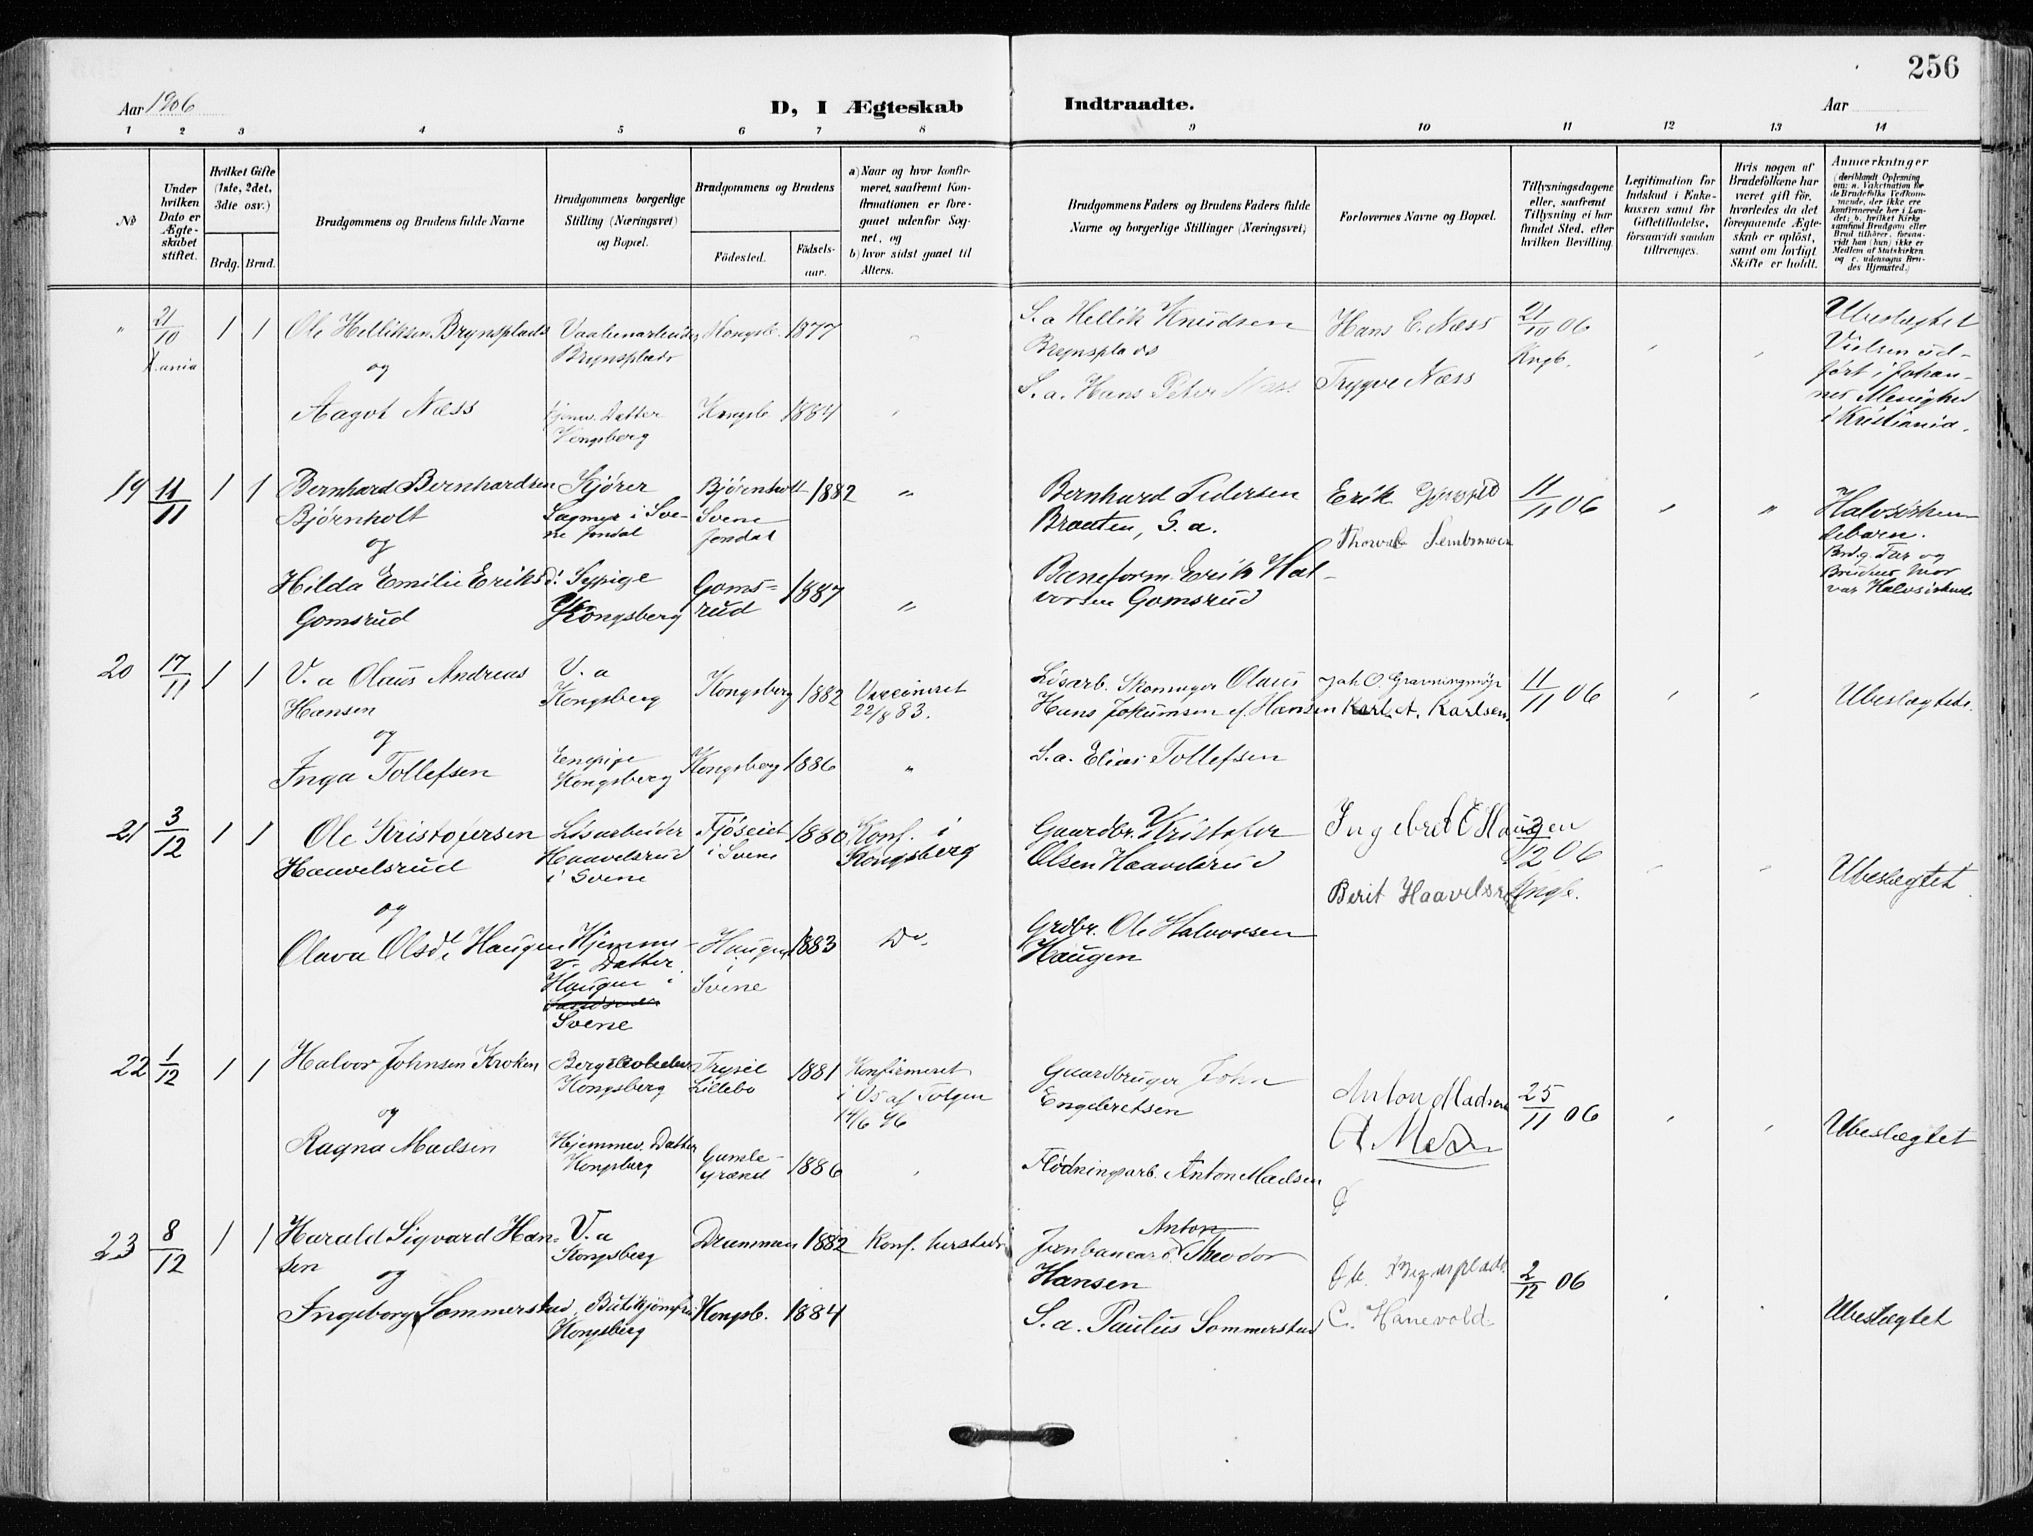 256
Aar 1906
D, I Ægteskab Indtraadte.
Aar
1 2 3 4 5 6 7 8 9 10 11 12 13 14
No
Under hvilken Dato er Ægteskabet stiftet.
Hvilket Gifte (1ste, 2det, 3die osv.)
Brdg. Brud.
Brudgommens og Brudens fulde Navne
Brudgommens borgerlige Stilling (Næringsvei) og Bopæl.
Brudgommens og Brudens
Fødested.
Fødselsaar.
a) Naar og hvor konfirmeret, saafremt Konfirmationen er foregaaet udenfor Sognet, og
b) hvor sidst gaaet til Alters.
Brudgommens Faders og Brudens Faders fulde Navne og borgerlige Stillinger (Næringsvei)
Forlovernes Navne og Bopæl.
Tillysningsdagene eller, saafremt Tillysning ei har fundet Sted, efter hvilken Bevilling.
Legitimation for Indskud i Enkekassen samt for Giftetilladelse, forsaavidt saadan tiltrænges.
Hvis nogen af Brudefolkene har været gift før, hvorledes da det foregaaende Ægteskab er opløst, samt om lovligt Skifte er holdt.
Anmærkninger (deriblandt Oplysning om: a. Vaktination for de Brudefolks Vedkommende, der ikke ere konfirmerede her i Landet; b. hvilket Kirkesamfund Brudgom eller Brud tilhører, forsaavidt han (hun) ikke er Medlem af Statskirken og c. udensogns Brudes Hjemsted.)
" 21/10 Xania 1 1 Ole Helliksen Brynsplads Vaabenarbeider Brynsplads Kongsb. 1877 "
S.a Hellik Knudsen Brynsplads
Hans E. Næss 21/10 06 Kngb.
Ubeslægtet Vielsen udført i Johannes Menighed i Kristiania.
og
Aagot Næss hjemv. Datter Kongsberg Kongsb. 1884 "
S.a. Hans Peter Næss Trygve Næss
19 11/11 1 1 Bernhard Bernhardsen Bjørnholt Kjører Sagmyr i Svene Jondal Bjørnholt Svene Jondal 1882 "
Bernhard Pedersen Braaten, S.a.
Erik 11/11 06
Halvsøskendebarn. Brdg. Far og Brudens mor var Halvsøskende
og
Hilda Emilie Eriksd. Gomsrud Sypige Kongsberg Gomsrud 1887 "
Baneform. Erik Halvorsen Gomsrud
20 17/11 1 1 V.a Olaus Andreas Hansen V.a Kongsberg Kongsberg 1882 Vaccineret 22/8 83.
Løsarb. Skomager Olaus Hans Jokumsen ef. Hansen
Karl A. Karlsen 11/11 06
Ubeslægtede.
og
Inga Tollefsen Enepige Kongsberg Kongsberg 1886 "
S.a. Elias Tollefsen
21 3/12 1 1 Ole Kristofersen Haavelsrud Løsarbeider Haavelsrud i Svene Fjøseiet i Svene 1880 Konf. i Kongsberg
Gaardbr. Kristofer Olsen Haavelsrud
Ingebret O Haugen
12 06 Kngb.
Ubeslægtet
og
Olava Olsd. Haugen Hjemmev. Datter Haugen i Svene Haugen i Svene 1883 Do.
Grdbr. Ole Halvorsen Haugen
Berit Haavelsrud
22 1/12 1 1 Halvor Johnsen Kroken Bergarbeider Kongsberg Trysil Lillebo 1881 Konfirmeret i Os af Tolgen 14/6 96
Gaardbruger John Engebretsen
Anton Madsen 25/11 06
Ubeslægtet
og
Ragna Madsen Hjemmev. Datter Kongsberg Gamlegrænd 1886 "
Flødningsarb. Anton Madsen
23 8/12 1 1 Harald Sigvard Hansen V.a Kongsberg Drammen 1882 Konf. hersteds
Jernbanearb. Anton Theodor Hansen
Brynsplads 2/12 06
Ubeslægtet
og
Ingeborg Sommerstad Butikjomfru Kongsberg Kongsb. 1884
S.a. Paulus Sommerstad
C. Hanevold